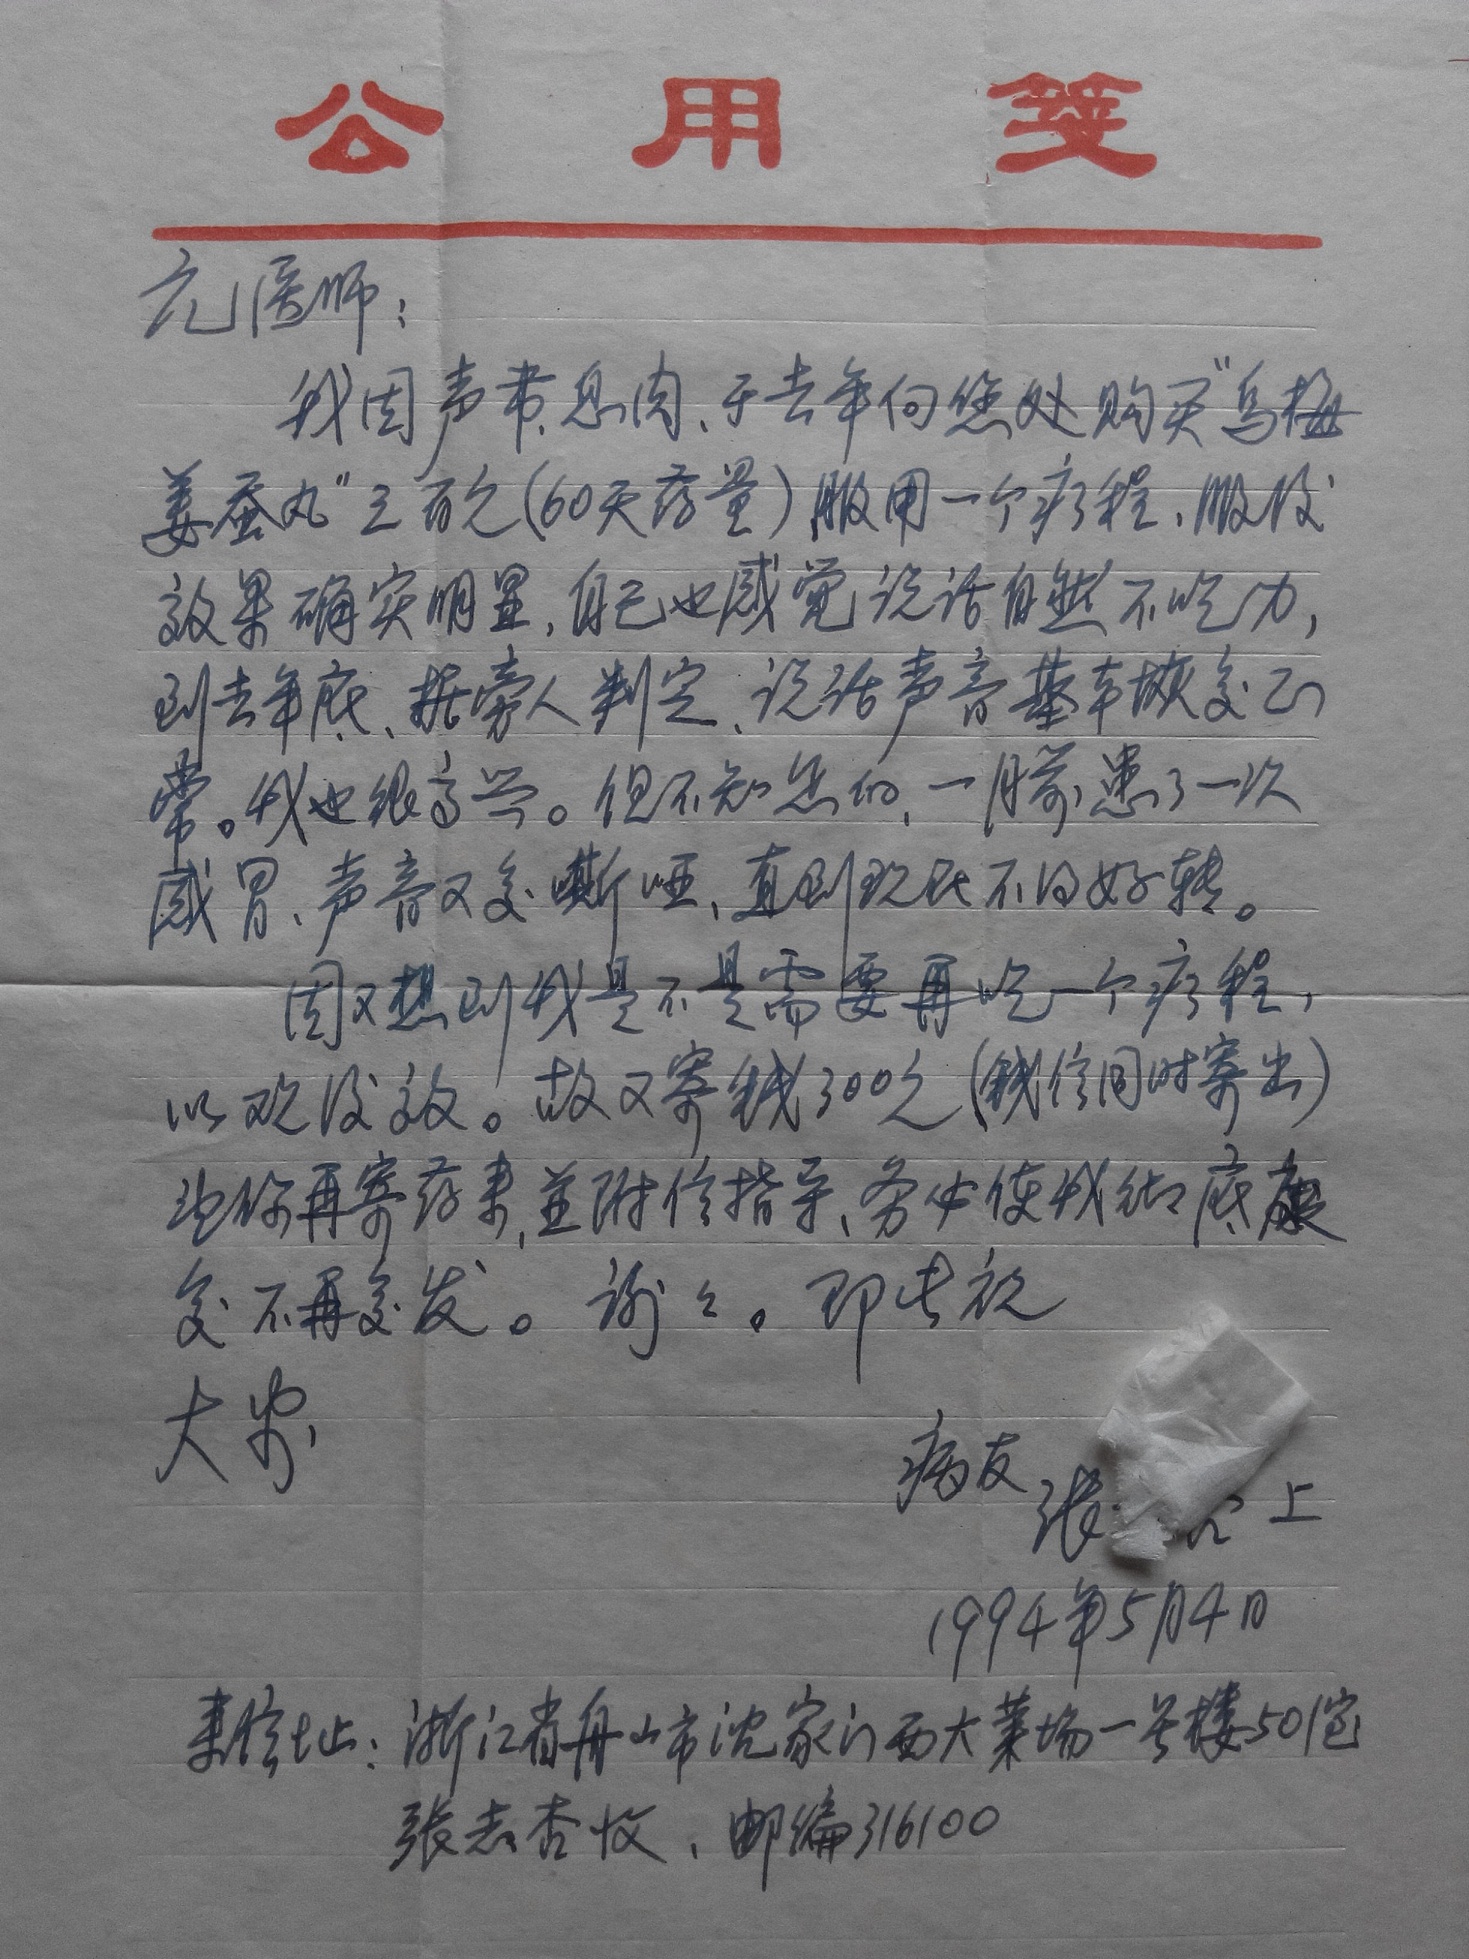 公用笺
元医师：
我因声带息肉、于去年向您处购买“乌梅
姜蚕丸”三百元（60天药量）服用一个疗程、服后
效果确实明显，自己也感觉说话自然不吃力，
到去年底、据旁人判定、说话声音基本恢复正
常。我也很高兴。但不知怎的，一月前患了一次
感冒、声音又变嘶哑，直到现在不得好转。
因又想到我是不是需要再吃一个疗程，
以观后效。故又寄钱300元（钱信同时寄出）
望你再寄药来，並附信指导、务必使我彻底康
复不再复发。谢々。即此祝
大安
病友
张 上
1994年5月4日
来信址：浙江省舟山市沈家门西大菜场一号楼501室
张志杏收、邮编316100